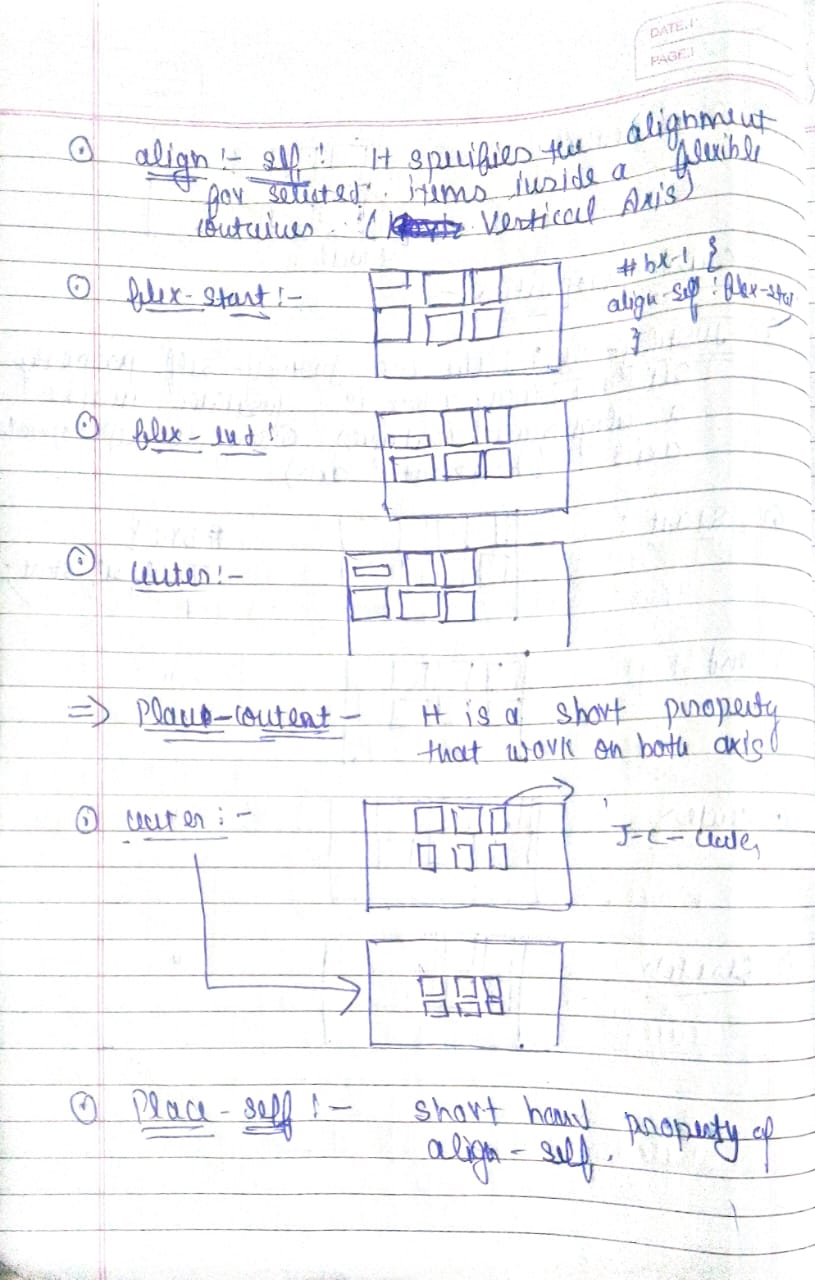 DATE:
PAGE:
align :- self : It specifies the alignment
for selected items inside a flexible
container. ( Vertical Axis)
flex-start :-
# bx-1 {
align-self : flex-star
}
flex-end :
center :-
=> Place-content - It is a short property
that work on both axis
center :-
J-C- cente
Place-self :- short hand property of
align-self.